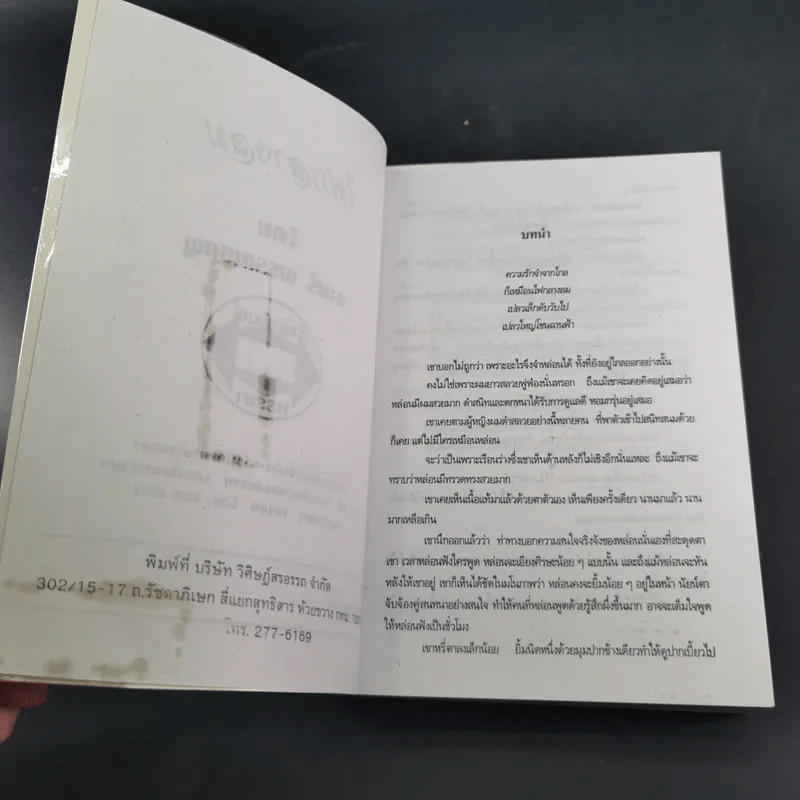 พิมพ์ที่ บริษัท วิศิษฎ์สรอรรถ จำกัด
302/15-17 ถ.รัชดาภิเษก สี่แยกสุทธิสาร ห้วยขวาง กทม.
โทร. 277-6169
บทนำ
ความรักจำจากไกล
ก็เหมือนไฟกลางลม
เปลวเล็กดับวับไป
เปลวใหญ่โชนฉานฟ้า
เขาบอกไม่ถูกว่า เพราะอะไรจึงจำหล่อนได้ ทั้งที่ยังอยู่ไกลออกอย่างนั้น
คงไม่ใช่เพราะผมยาวสลวยฟูฟ่องนั่นหรอก ถึงแม้เขาจะเคยคิดอยู่เสมอว่า
หล่อนมีผมสวยมาก ดำสนิทและดกหนาได้รับการดูแลดี หอมกรุ่นอยู่เสมอ
เขาเคยตามผู้หญิงผมดำสลวยอย่างนี้หลายคน ที่พาตัวเข้าไปสนิทสนมด้วย
ก็เคย แต่ไม่มีใครเหมือนหล่อน
จะว่าเป็นเพราะเรือนร่างซึ่งเขาเห็นด้านหลังก็ไม่เชิงอีกนั่นแหละ ถึงแม้เขาจะ
ทราบว่าหล่อนมีทรวดทรงสวยมาก
เขาเคยเห็นเนื้อแท้มาแล้วด้วยตาตัวเอง เห็นเพียงครั้งเดียว นานมาแล้ว นาน
มากเหลือเกิน
เขานึกออกแล้วว่า ท่าทางบอกความสนใจจริงจังของหล่อนนั่นเองที่สะดุดตา
เขา เวลาหล่อนฟังใครพูด หล่อนจะเอียงศีรษะน้อย ๆ แบบนั้น และถึงแม้หล่อนจะหัน
หลังให้เขาอยู่ เขาก็เห็นได้ชัดในมโนภาพว่า หล่อนคงจะยิ้มน้อย ๆ อยู่ในหน้า นัยน์ตา
จับจ้องคู่สนทนาอย่างสนใจ ทำให้คนที่หล่อนพูดด้วยรู้สึกผึ่งขึ้นมาก อาจจะเต็มใจพูด
ให้หล่อนฟังเป็นชั่วโมง
เขาหรี่ตาลงเล็กน้อย ยิ้มนิดหนึ่งด้วยมุมปากข้างเดียวทำให้ดูปากเบี้ยวไป